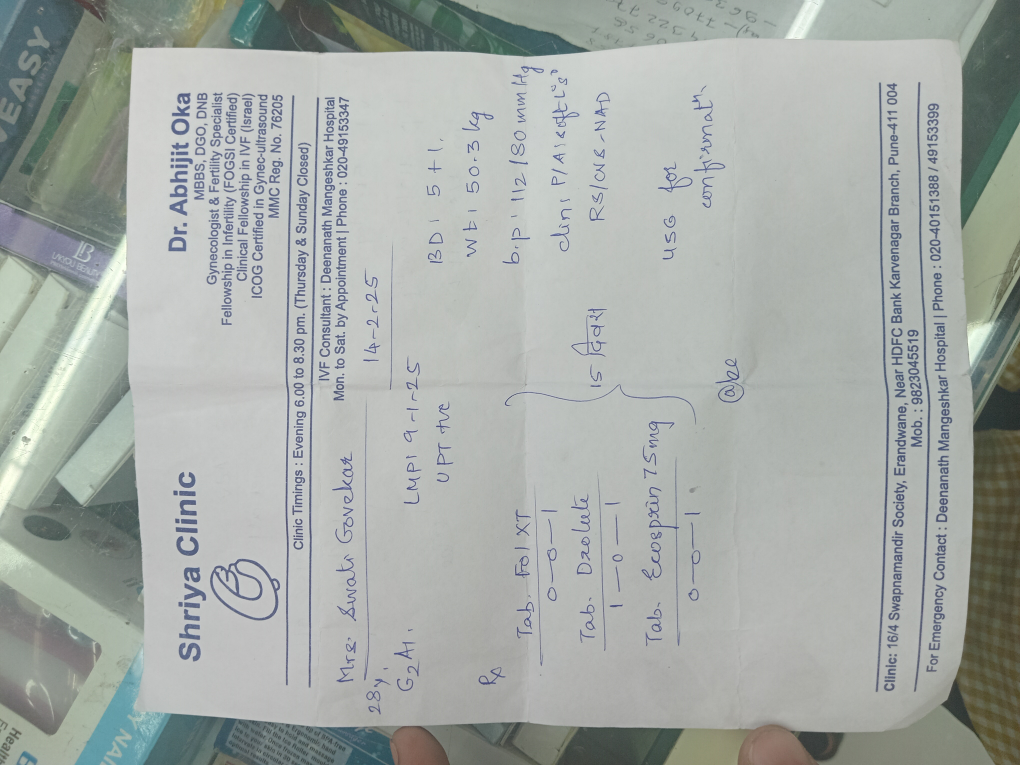 Shriya Clinic
Dr. Abhijit Oka
MBBS, DGO, DNB
Gynecologist & Fertility Specialist
Fellowship in Infertility (FOGSI Certified)
Clinical Fellowship in IVF (Israel)
ICOG Certified in Gynec-ultrasound
MMC Reg. No. 76205
Clinic Timings : Evening 6.00 to 8.30 pm. (Thursday & Sunday Closed)
IVF Consultant : Deenanath Mangeshkar Hospital
Mon. to Sat. by Appointment | Phone : 020-49153347
Mrs. Swati Govekar 14-2-25
28y,
G2A1. LMP: 9-1-25 BD: 5+1.
UPT +ve Wt: 50.3 kg
Rx b.p: 112/80 mmHg
Tab. Fol XT
0-0-1
clini P/A: soft
RS/CVS-NAD
Tab. Dzolute 15 दिवस
1-0-1
USG for
confirmatn.
Tab. Ecosprin 75mg
0-0-1
Clinic: 16/4 Swapnamandir Society, Erandwane, Near HDFC Bank Karvenagar Branch, Pune-411 004
Mob. : 9823045519
For Emergency Contact : Deenanath Mangeshkar Hospital | Phone : 020-40151388 / 49153399
EASY